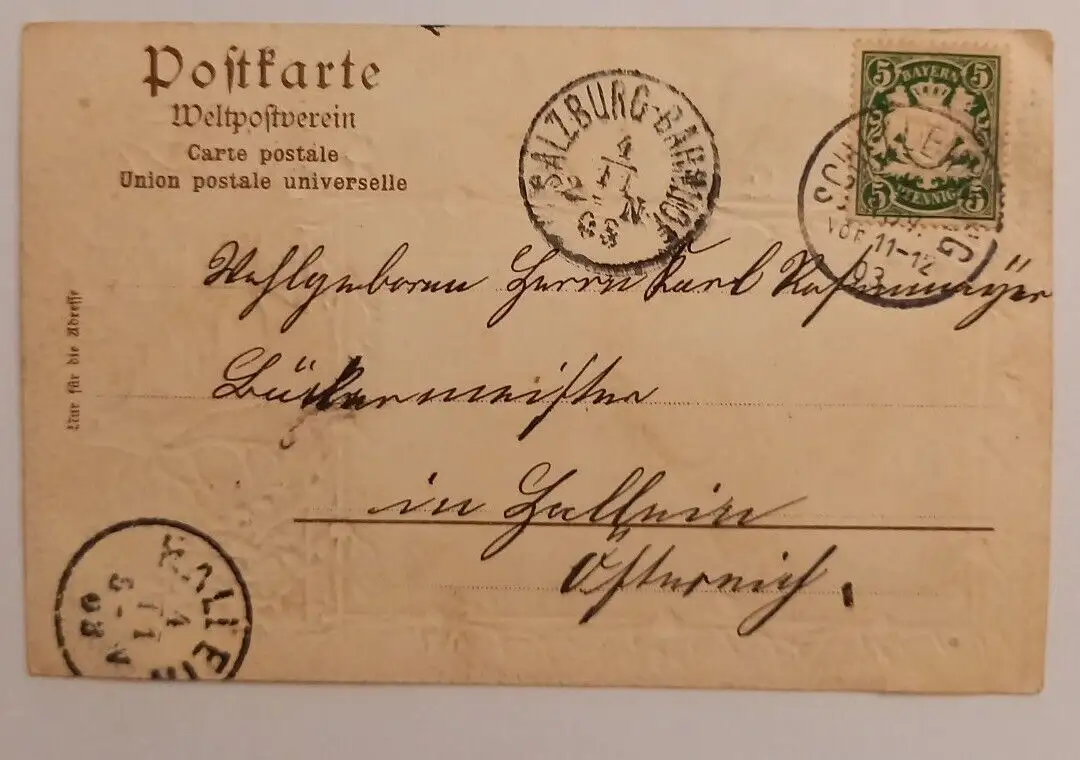 Postkarte
Weltpostverein
Carte postale
Union postale universelle
Nur für die Adresse
SALZBURG-BAHNHOF
4
11
N
03
5 BAYERN 5
5 PFENNIG 5
VOR. 11-12
03
Wohlgeboren Herrn Karl
Bäckermeister
in Hallein
Österreich.
HALLEIN
4
11
03